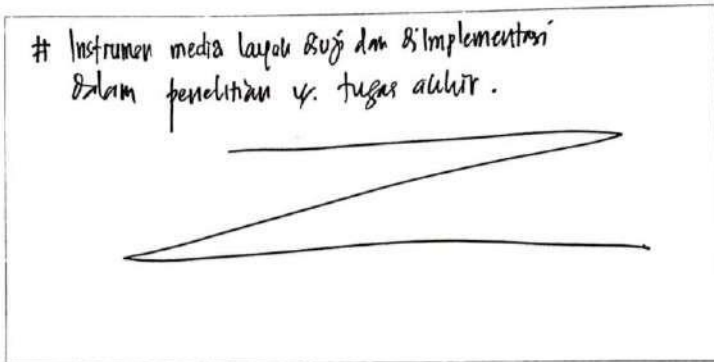 # Instrumen media layak diuji dan diimplementasi
dalam penelitian u. tugas akhir.